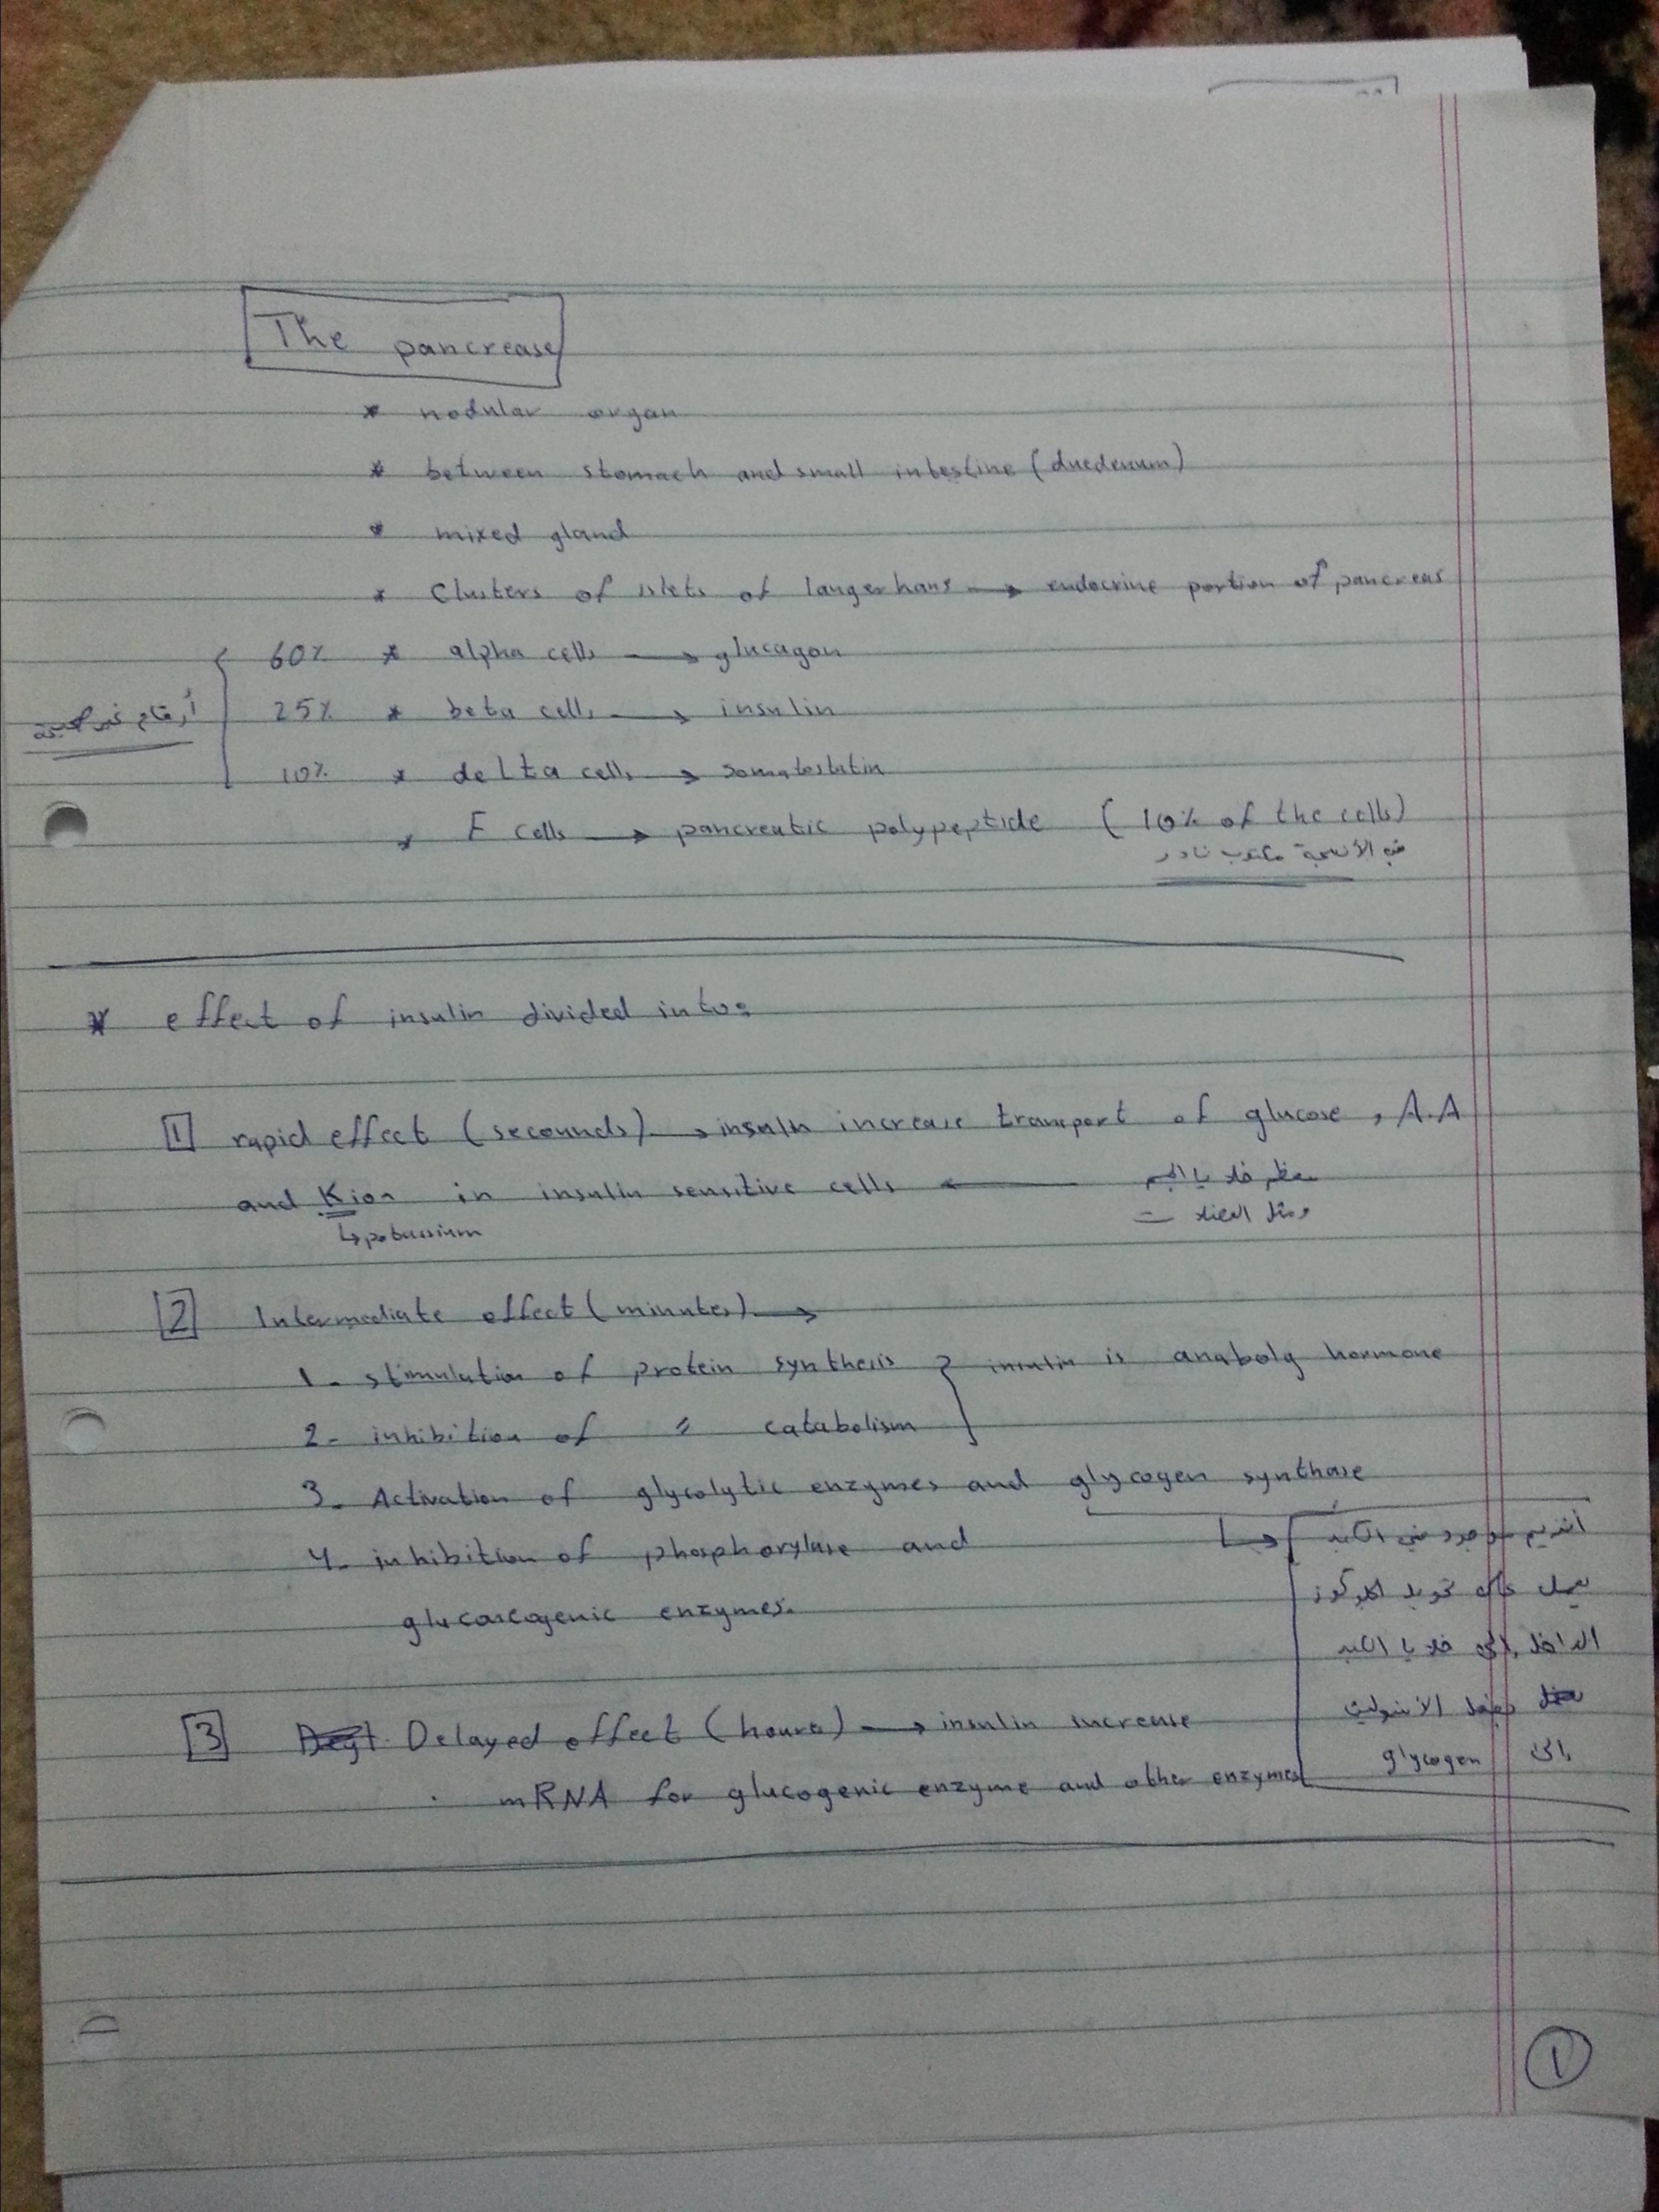 The pancrease
* nodular organ
* between stomach and small intestine (duedenum)
* mixed gland
* Clusters of islets of langerhans → endocrine portion of pancreas
60% * alpha cells → glucagon
25% * beta cells → insulin
أرقام غير صحيحة
10% * delta cells → somatostatin
* F cells → pancreatic polypeptide (10% of the cells)
في الأنسجة مكتوب نادر
* effect of insulin divided into:
1 rapid effect (secounds) → insulin increase transport of glucose, A.A
and K ion in insulin sensitive cells ← معظم خلايا الجسم
ومثل العضلات
↳ potassium
2 Intermediate effect (minutes) →
1- stimulation of protein synthesis } insulin is anaboly hormone
2- inhibition of = catabolism
3- Activation of glycolytic enzymes and glycogen synthase
↳ أنزيم موجود في الكبد
4- inhibition of phosphorylase and
يعمل على تحويل الكلوكوز
glucaseogenic enzymes.
الداخل إلى خلايا الكبد
بفعل الأنسولين
إلى glycogen
3 Delayed effect (hours) → insulin increase
mRNA for glucogenic enzyme and other enzymes
1